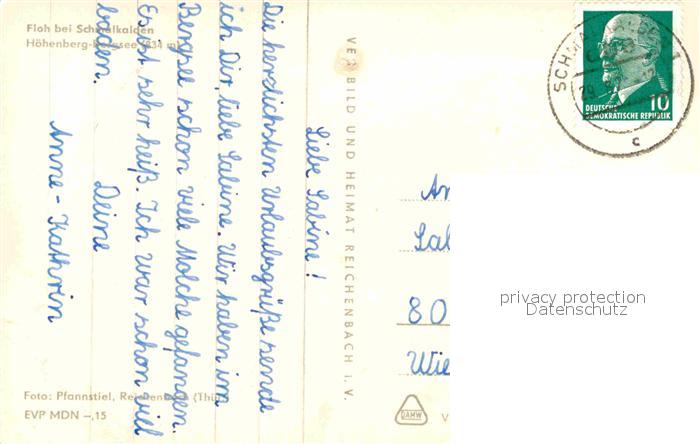 Floh bei Schmalkalden
Höhenberg-Bergsee (834 m)
Liebe Sabine!
Die herzlichsten Urlaubsgrüße sende
ich Dir, liebe Sabine. Wir haben im
Bergsee schon viele Molche gefangen.
Es ist sehr heiß. Ich war schon viel
baden.
Deine
Anne-Kathrin
Foto: Pfannstiel, Reichenbach (Thür)
EVP MDN -,15
VEB BILD UND HEIMAT REICHENBACH i. V.
DEUTSCHE
DEMOKRATISCHE REPUBLIK
10
An
80
Wie
privacy protection
Datenschutz
DAMW
V